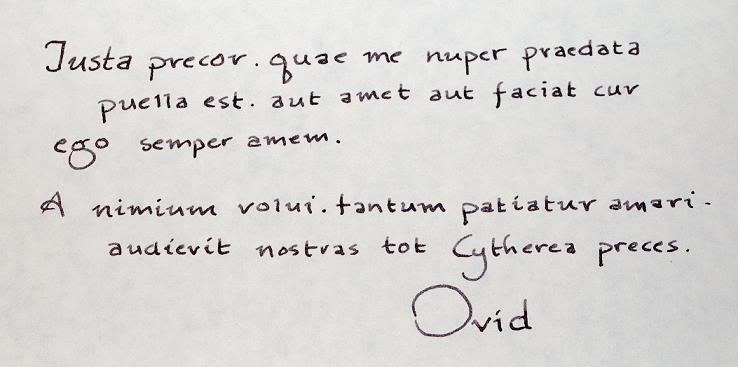 Justa precor. quae me nuper praedata
puella est. aut amet aut faciat cur
ego semper amem.
A nimium volui. tantum patiatur amari.
audierit nostras tot Cytherea preces.
Ovid